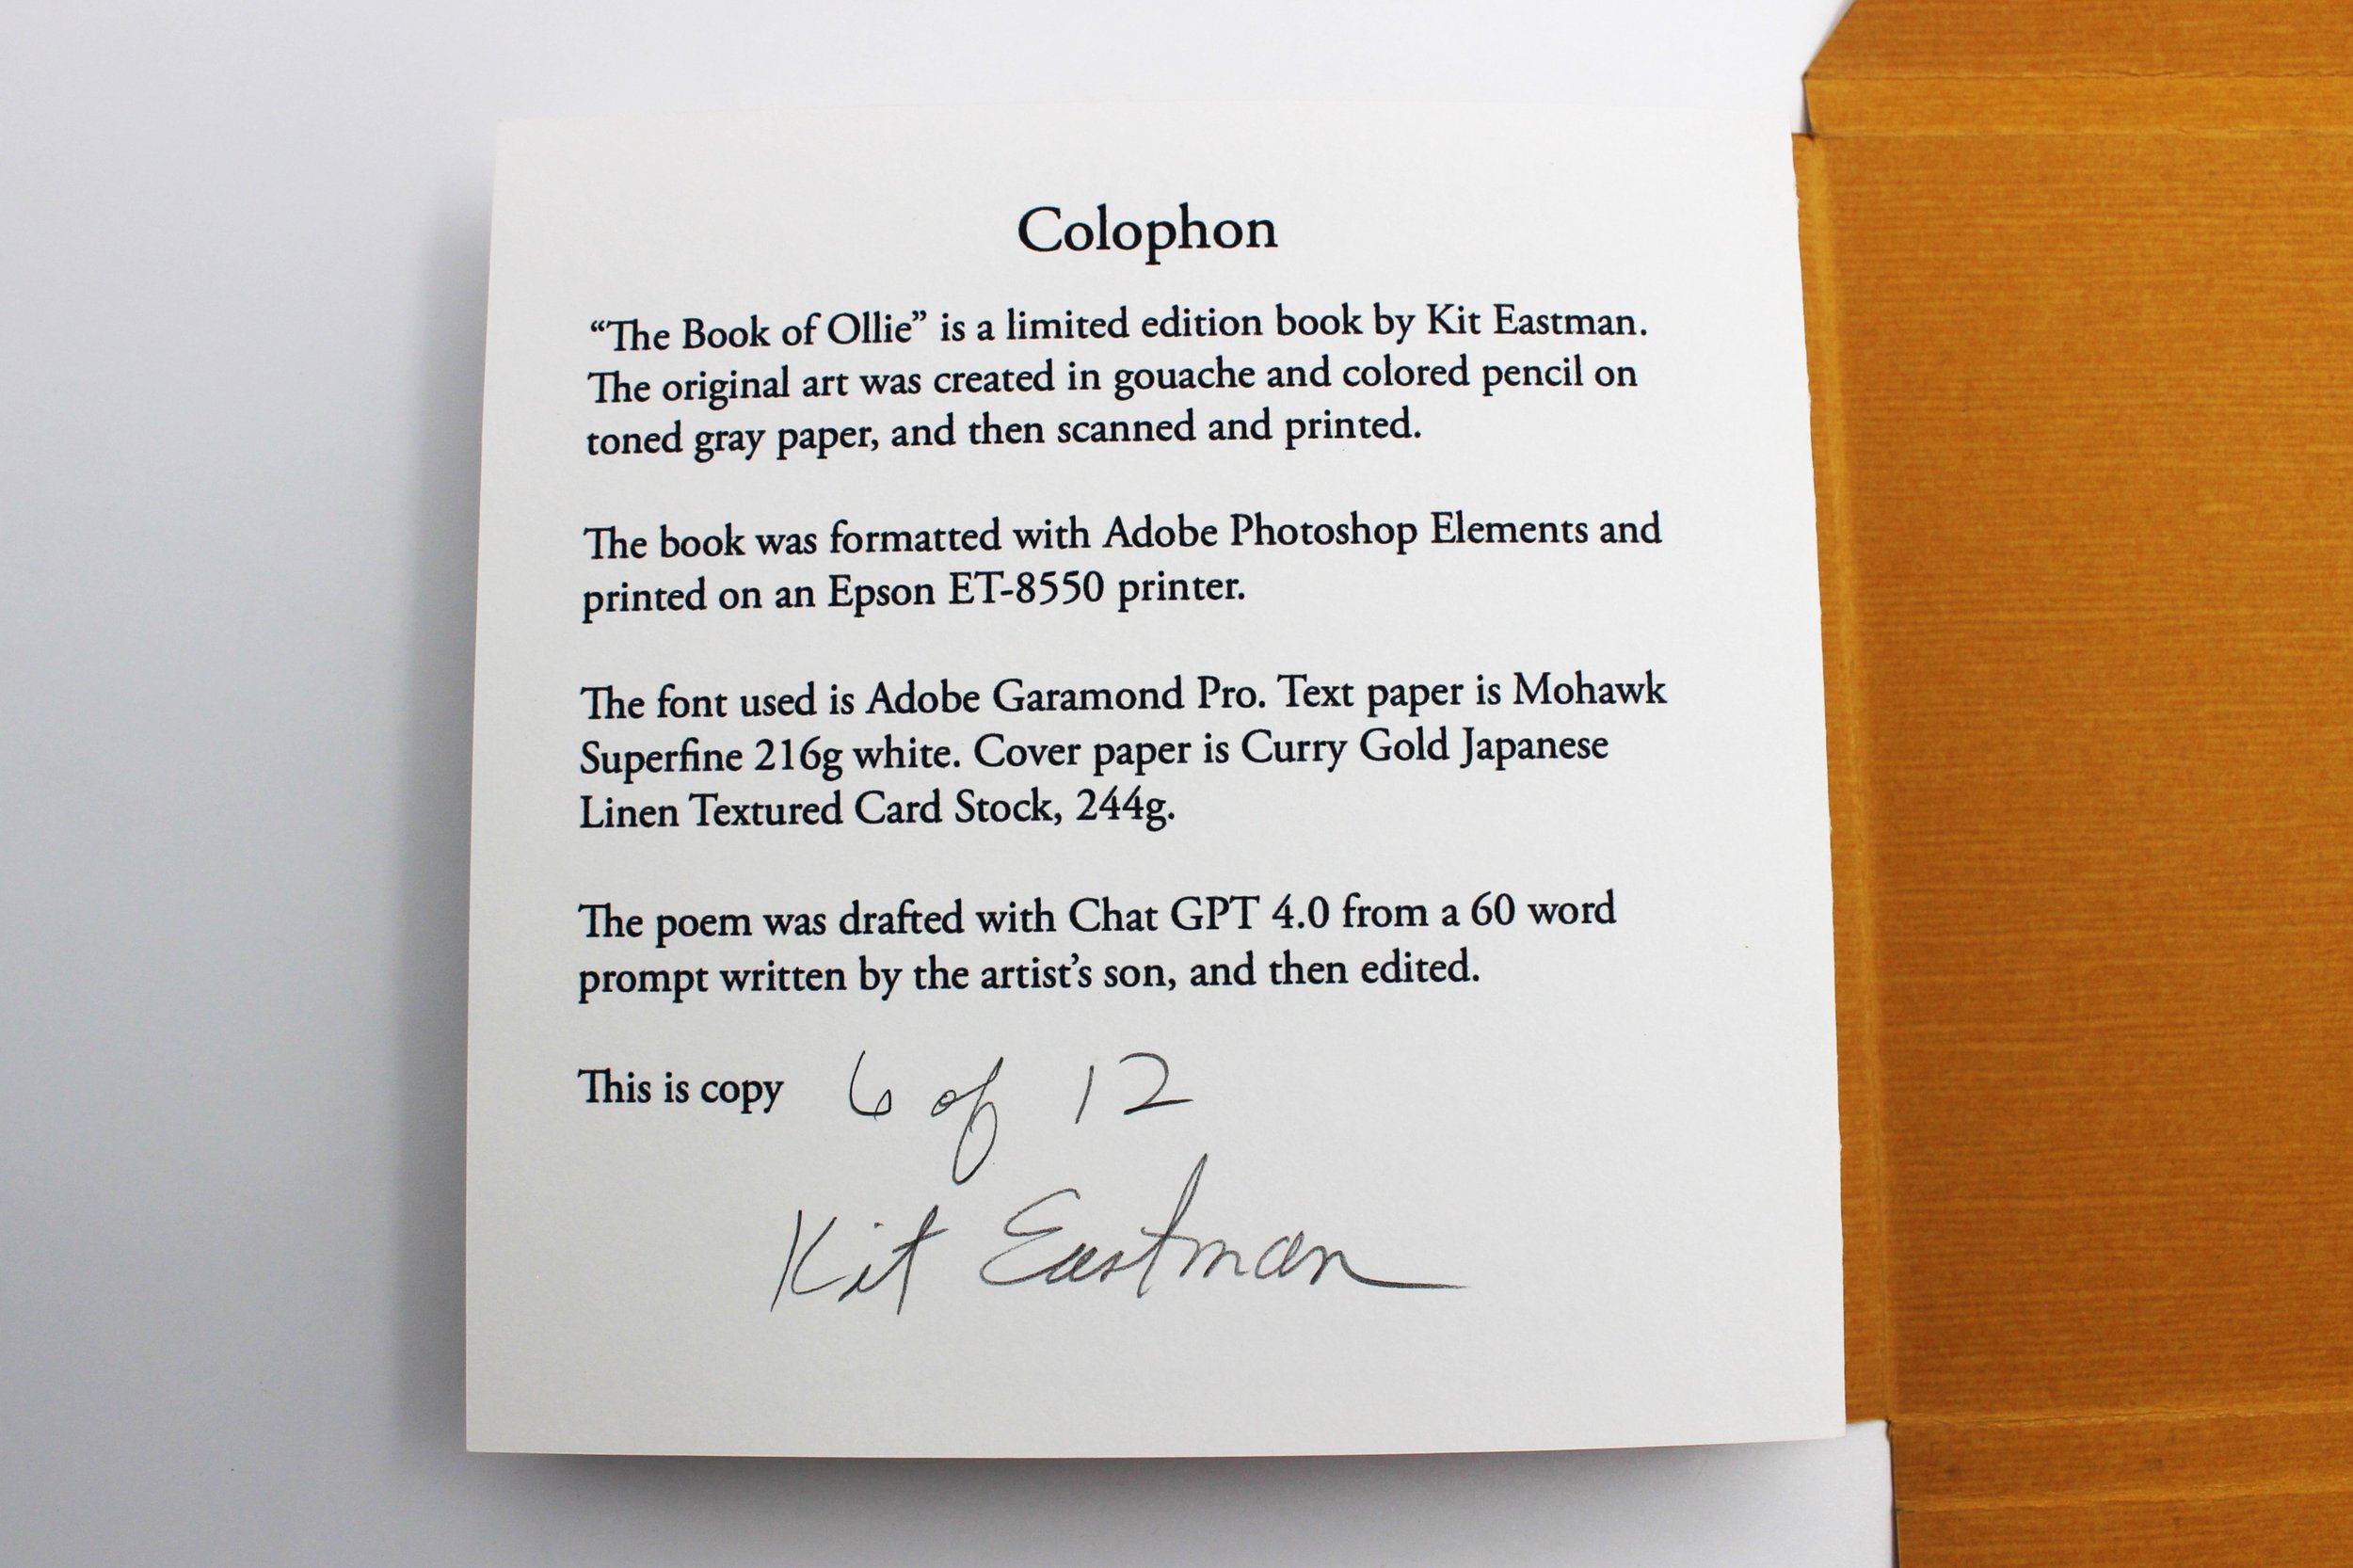 Colophon
“The Book of Ollie” is a limited edition book by Kit Eastman.
The original art was created in gouache and colored pencil on
toned gray paper, and then scanned and printed.
The book was formatted with Adobe Photoshop Elements and
printed on an Epson ET-8550 printer.
The font used is Adobe Garamond Pro. Text paper is Mohawk
Superfine 216g white. Cover paper is Curry Gold Japanese
Linen Textured Card Stock, 244g.
The poem was drafted with Chat GPT 4.0 from a 60 word
prompt written by the artist’s son, and then edited.
This is copy 6 of 12
Kit Eastman